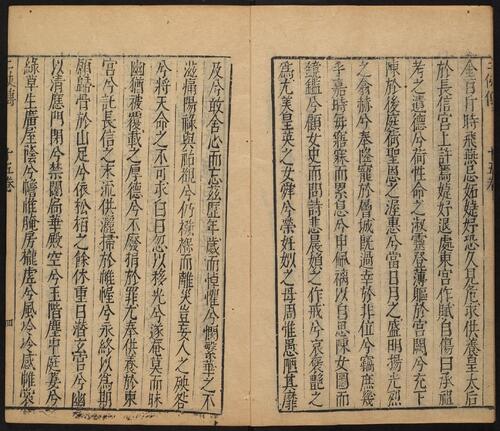 金宫于時飛燕忌妬婕妤恐久見危求供養皇太后
於長信宮上許焉婕妤退處東宮作賦自傷曰承祖
考之遺德兮荷性命之淑靈登薄軀於宮闕兮充下
陳於後庭荷聖恩之渥惠兮當日月之盛明揚光烈
之翕赫兮奉隆寵於增城既過幸於非位兮竊庶幾
乎嘉時每寤寐而累息兮申佩褵以自思陳女圖而
鏡鑑兮顧女史而問詩悲晨婦之作戒兮哀褒豔之
為尤美皇英之女舜兮榮妊姒之母周惟愚陋其靡
及兮敢舍心而忘茲歷年歲而悼懼兮憫繁華之不
滋痛陽祿與祏觀兮仍襁褓而離災豈妾人之殃咎
兮將天命之不可求白日忽以移光兮遂奄莫而昧
幽猶被覆載之厚德兮不廢捐於罪尤奉供養於東
宮兮託長信之末流供灑掃於帷幄兮永終以為期
願歸骨於山足兮依松栢之餘休重曰潛玄宮兮幽
以清應門閉兮禁闥扃華殿空兮玉階塵中庭萋兮
綠草生廣屋蔭兮幨帷晻房櫳虛兮風泠泠感帷裳
二俠傳 十五卷 四